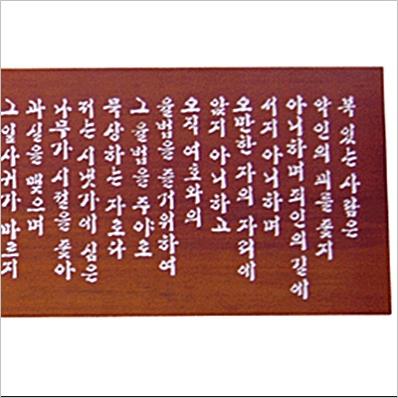 복 있는 사람은
악인의 꾀를 좇지
아니하며 죄인의 길에
서지 아니하며
오만한 자의 자리에
앉지 아니하고
오직 여호와의
율법을 즐거워하여
그 율법을 주야로
묵상하는 자로다
저는 시냇가에 심은
나무가 시절을 좇아
과실을 맺으며
그 잎사귀가 마르지